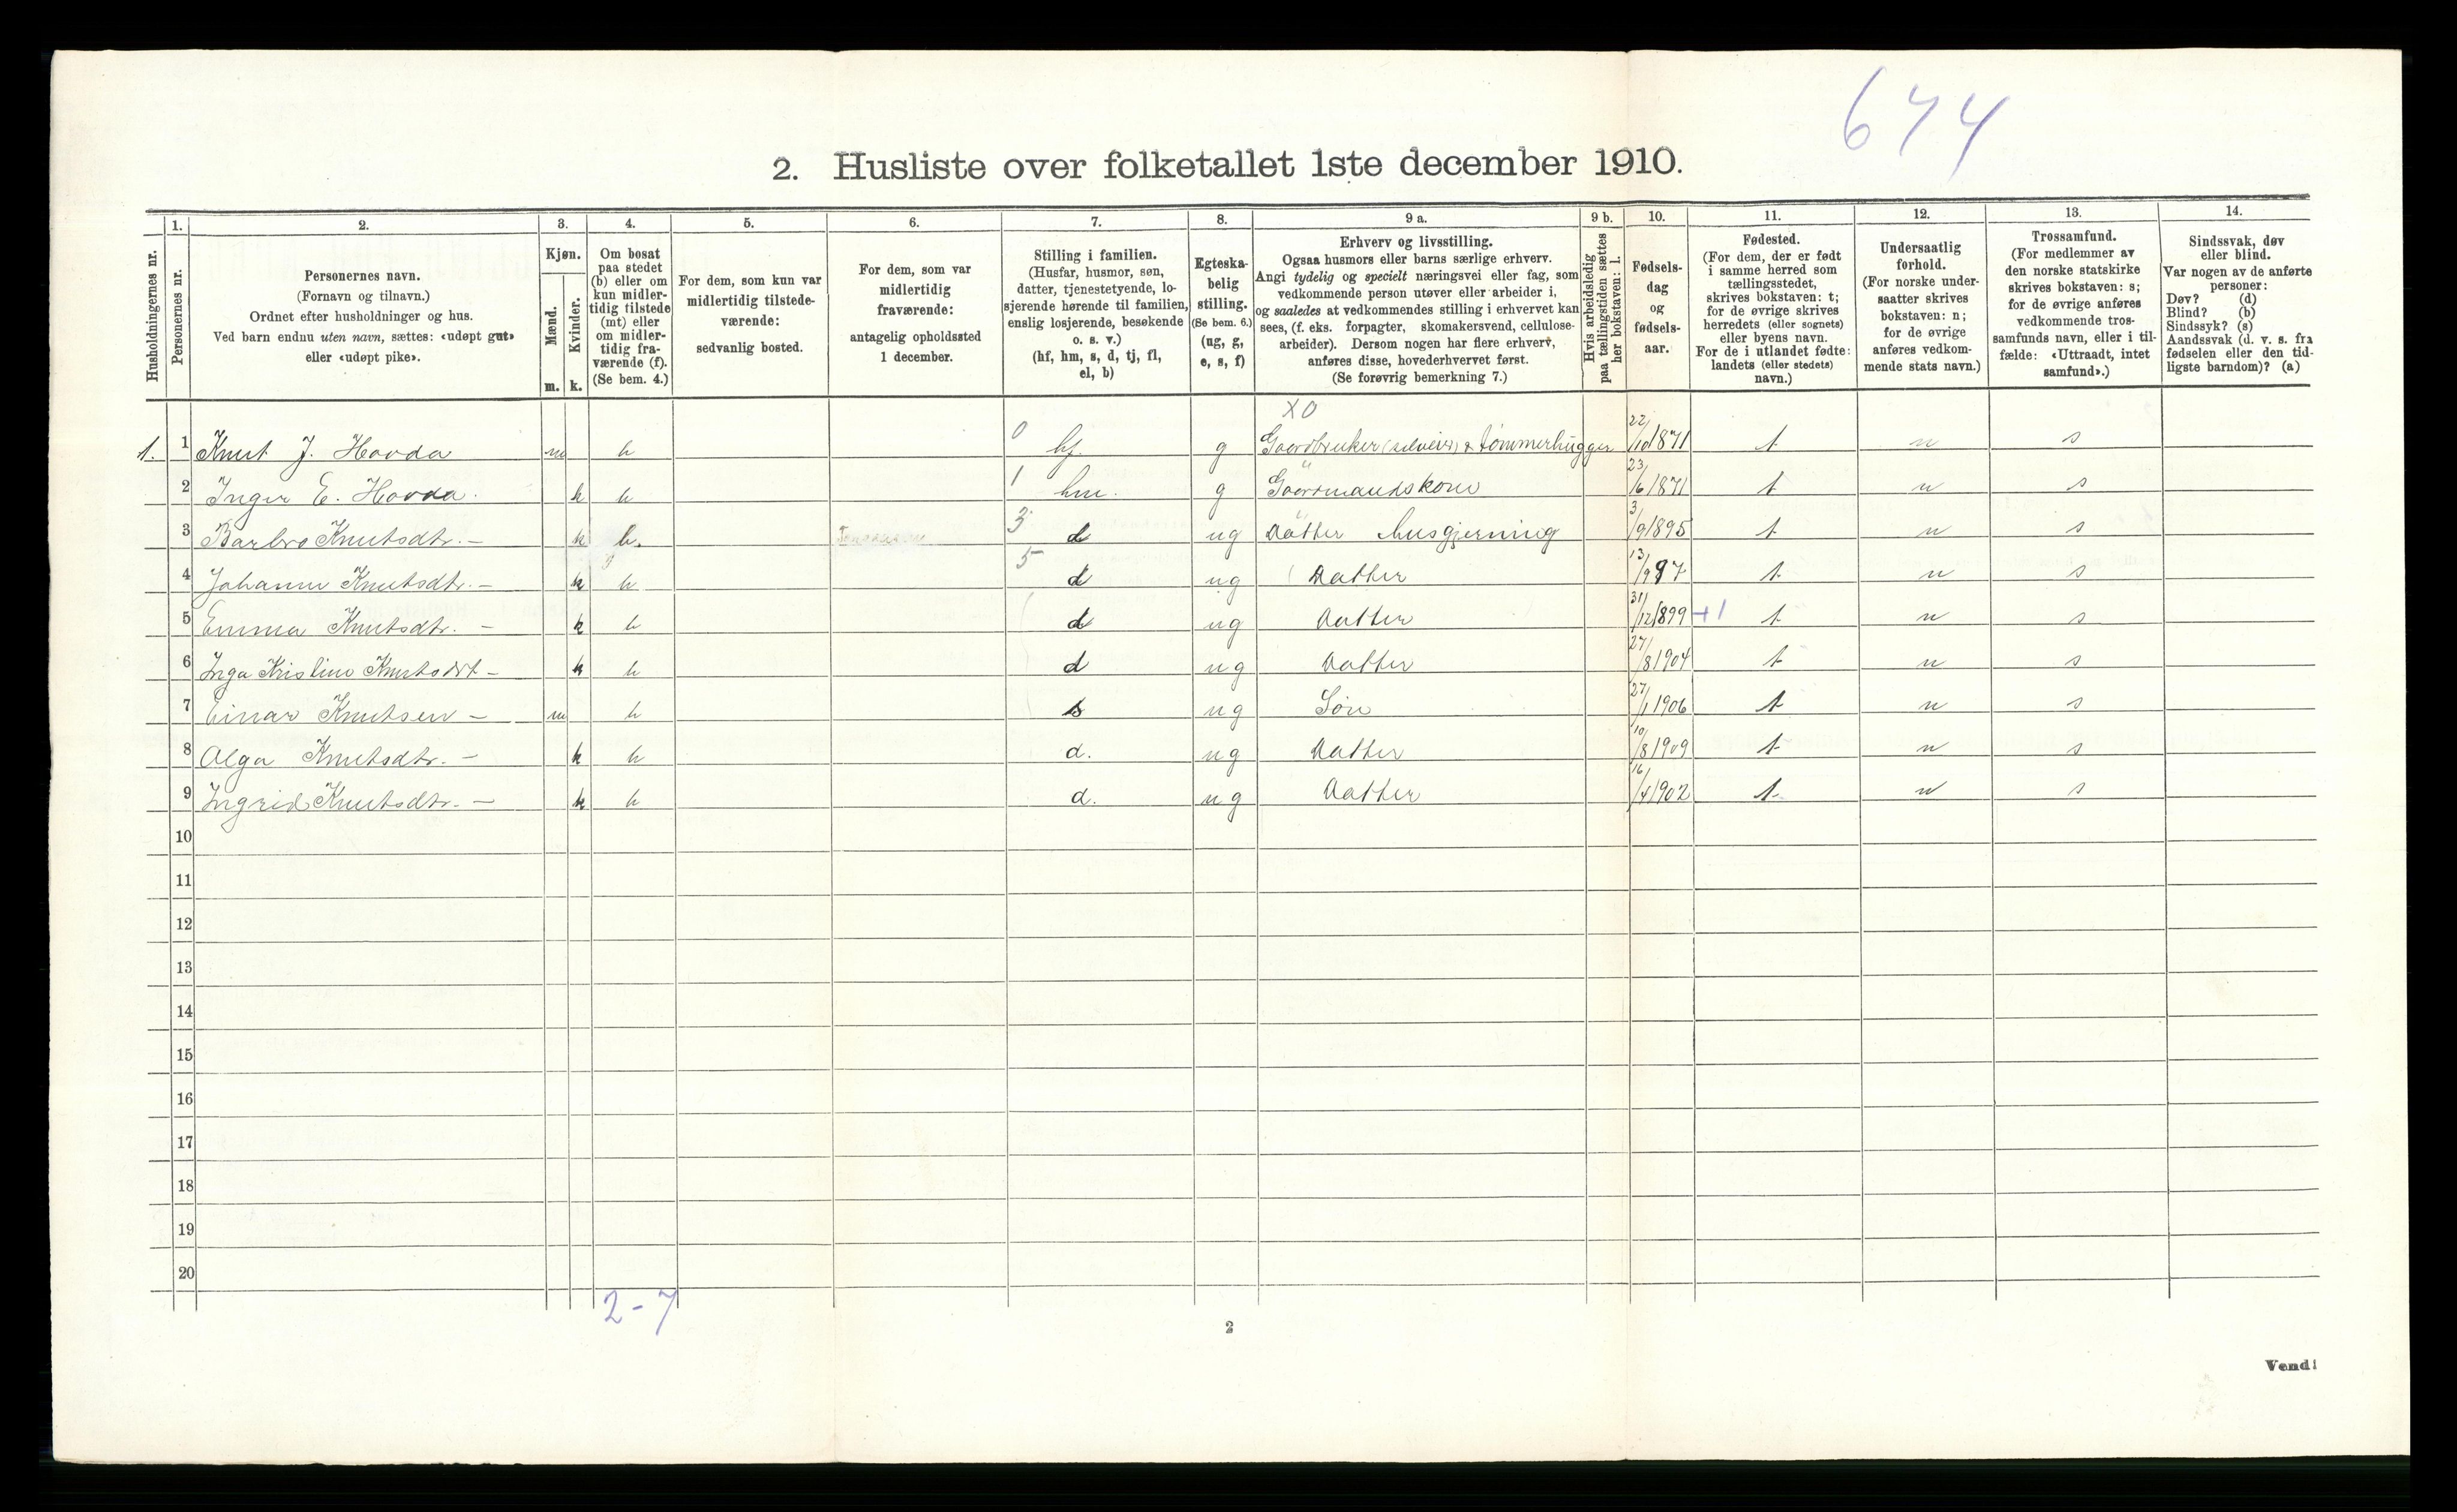 674
2. Husliste over folketallet 1ste december 1910.
Husholdningernes nr.
1.
Personernes nr.
2.
Personernes navn.
(Fornavn og tilnavn.)
Ordnet efter husholdninger og hus.
Ved barn endnu uten navn, sættes: «udøpt gut»
eller «udøpt pike».
3.
Kjøn.
Mænd.
Kvinder.
m. k.
4.
Om bosat
paa stedet
(b) eller om
kun midler-
tidig tilstede
(mt) eller
om midler-
tidig fra-
værende (f).
(Se bem. 4.)
5.
For dem, som kun var
midlertidig tilstede-
værende:
sedvanlig bosted.
6.
For dem, som var
midlertidig
fraværende:
antagelig opholdssted
1 december.
7.
Stilling i familien.
(Husfar, husmor, søn,
datter, tjenestetyende, lo-
sjerende hørende til familien,
enslig losjerende, besøkende
o. s. v.)
(hf, hm, s, d, tj, fl,
el, b)
8.
Egteska-
belig
stilling.
(Se bem. 6.)
(ug, g,
e, s, f)
9 a.
Erhverv og livsstilling.
Ogsaa husmors eller barns særlige erhverv.
Angi tydelig og specielt næringsvei eller fag, som
vedkommende person utøver eller arbeider i,
og saaledes at vedkommendes stilling i erhvervet kan
sees, (f. eks. forpagter, skomakersvend, cellulose-
arbeider). Dersom nogen har flere erhverv,
anføres disse, hovederhvervet først.
(Se forøvrig bemerkning 7.)
9 b.
Hvis arbeidsledig
paa tællingstiden sættes
her bokstaven: l.
10.
Fødsels-
dag
og
fødsels-
aar.
11.
Fødested.
(For dem, der er født
i samme herred som
tællingsstedet,
skrives bokstaven: t;
for de øvrige skrives
herredets (eller sognets)
eller byens navn.
For de i utlandet fødte:
landets (eller stedets)
navn.)
12.
Undersaatlig
forhold.
(For norske under-
saatter skrives
bokstaven: n;
for de øvrige
anføres vedkom-
mende stats navn.)
13.
Trossamfund.
(For medlemmer av
den norske statskirke
skrives bokstaven: s;
for de øvrige anføres
vedkommende tros-
samfunds navn, eller i til-
fælde: «Uttraadt, intet
samfund».)
14.
Sindssvak, døv
eller blind.
Var nogen av de anførte
personer:
Døv? (d)
Blind? (b)
Sindssyk? (s)
Aandssvak (d. v. s. fra
fødselen eller den tid-
ligste barndom)? (a)
X0
1. 1 Knut J. Hovda m b 0 hf. g Gaardbruker (selveier) & tømmerhugger 22/10 1871 t n s
2 Inger E. Hovda. k b 1 hm. g Gaardmandskone 23/6 1871 t n s
3 Barbro Knutsdtr. – k b. 3 d ug Datter husgjerning 3/9 1895 t n s
4 Johanne Knutsdtr. – k b 5 d ug Datter 13/9 97 t n s
5 Emma Knutsdtr. – k b d ug Datter 31/12 1899 +1 t n s
6 Inga Kristine Knutsdtr – k b d ug Datter 27/8 1904 t n s
7 Einar Knutsen – m b s ug Søn 27/1 1906 t n s
8 Olga Knutsdtr. – k b d. ug Datter 10/8 1909 t n s
9 Ingrid Knutsdtr. – k b d. ug Datter 16/4 1902 t n s
10
11
12
13
14
15
16
17
18
19
20
2-7
2
Vend!